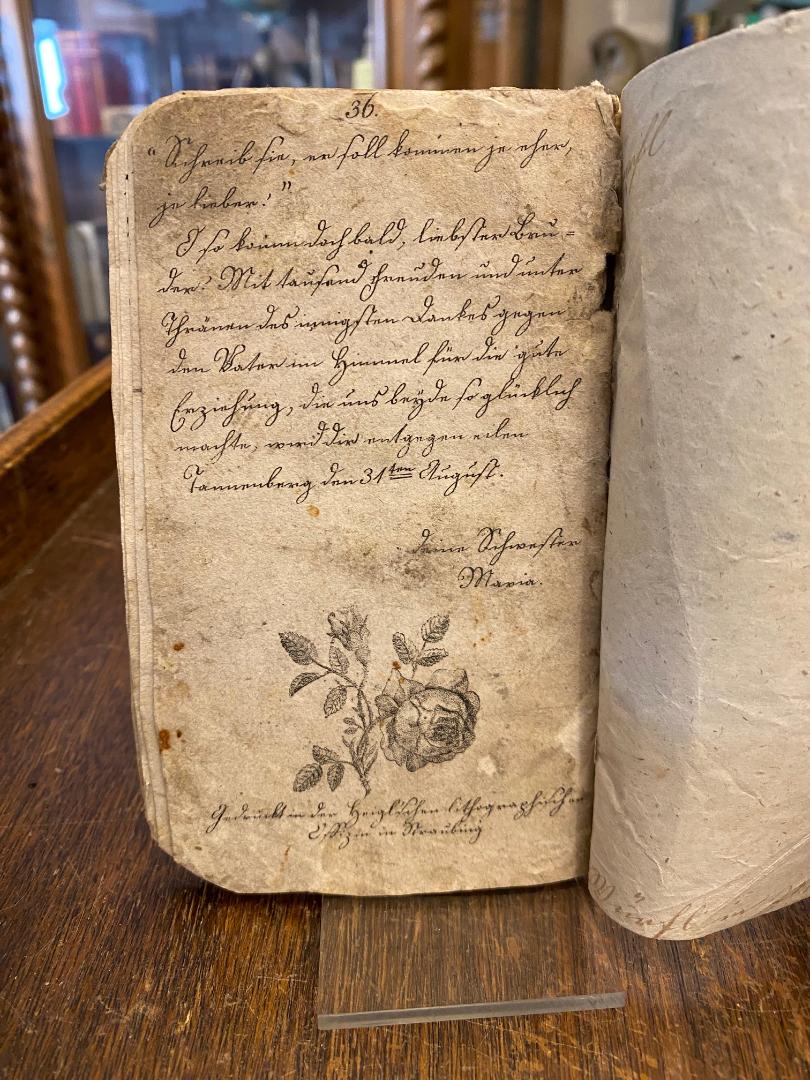 36.
"Schreib sie, er soll kommen je eher,
je lieber."
O so komm doch bald, liebster Bru=
der! Mit tausend Freuden und unter
Thränen des innigsten Dankes gegen
den Vater im Himmel für die gute
Erziehung, die uns beyde so glücklich
machte, wird dir entgegen eilen
Tannenberg den 31ten August.
deine Schwester
Maria.
Gedruckt in der Heigl'schen lithographischen
Offizin in Straubing